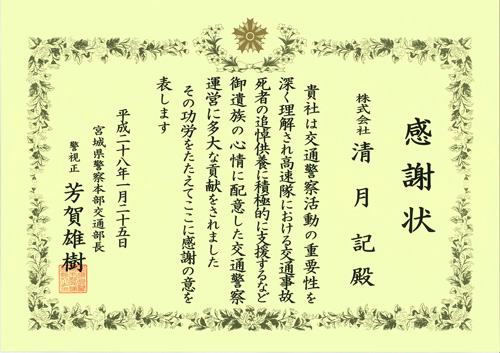 感謝状
株式会社 清月記殿
貴社は交通警察活動の重要性を
深く理解され高速隊における交通事故
死者の追悼供養に積極的に支援するなど
御遺族の心情に配意した交通警察
運営に多大な貢献をされました
その功労をたたえてここに感謝の意を
表します
平成二十八年一月二十五日
宮城県警察本部交通部長
警視正 芳賀雄樹